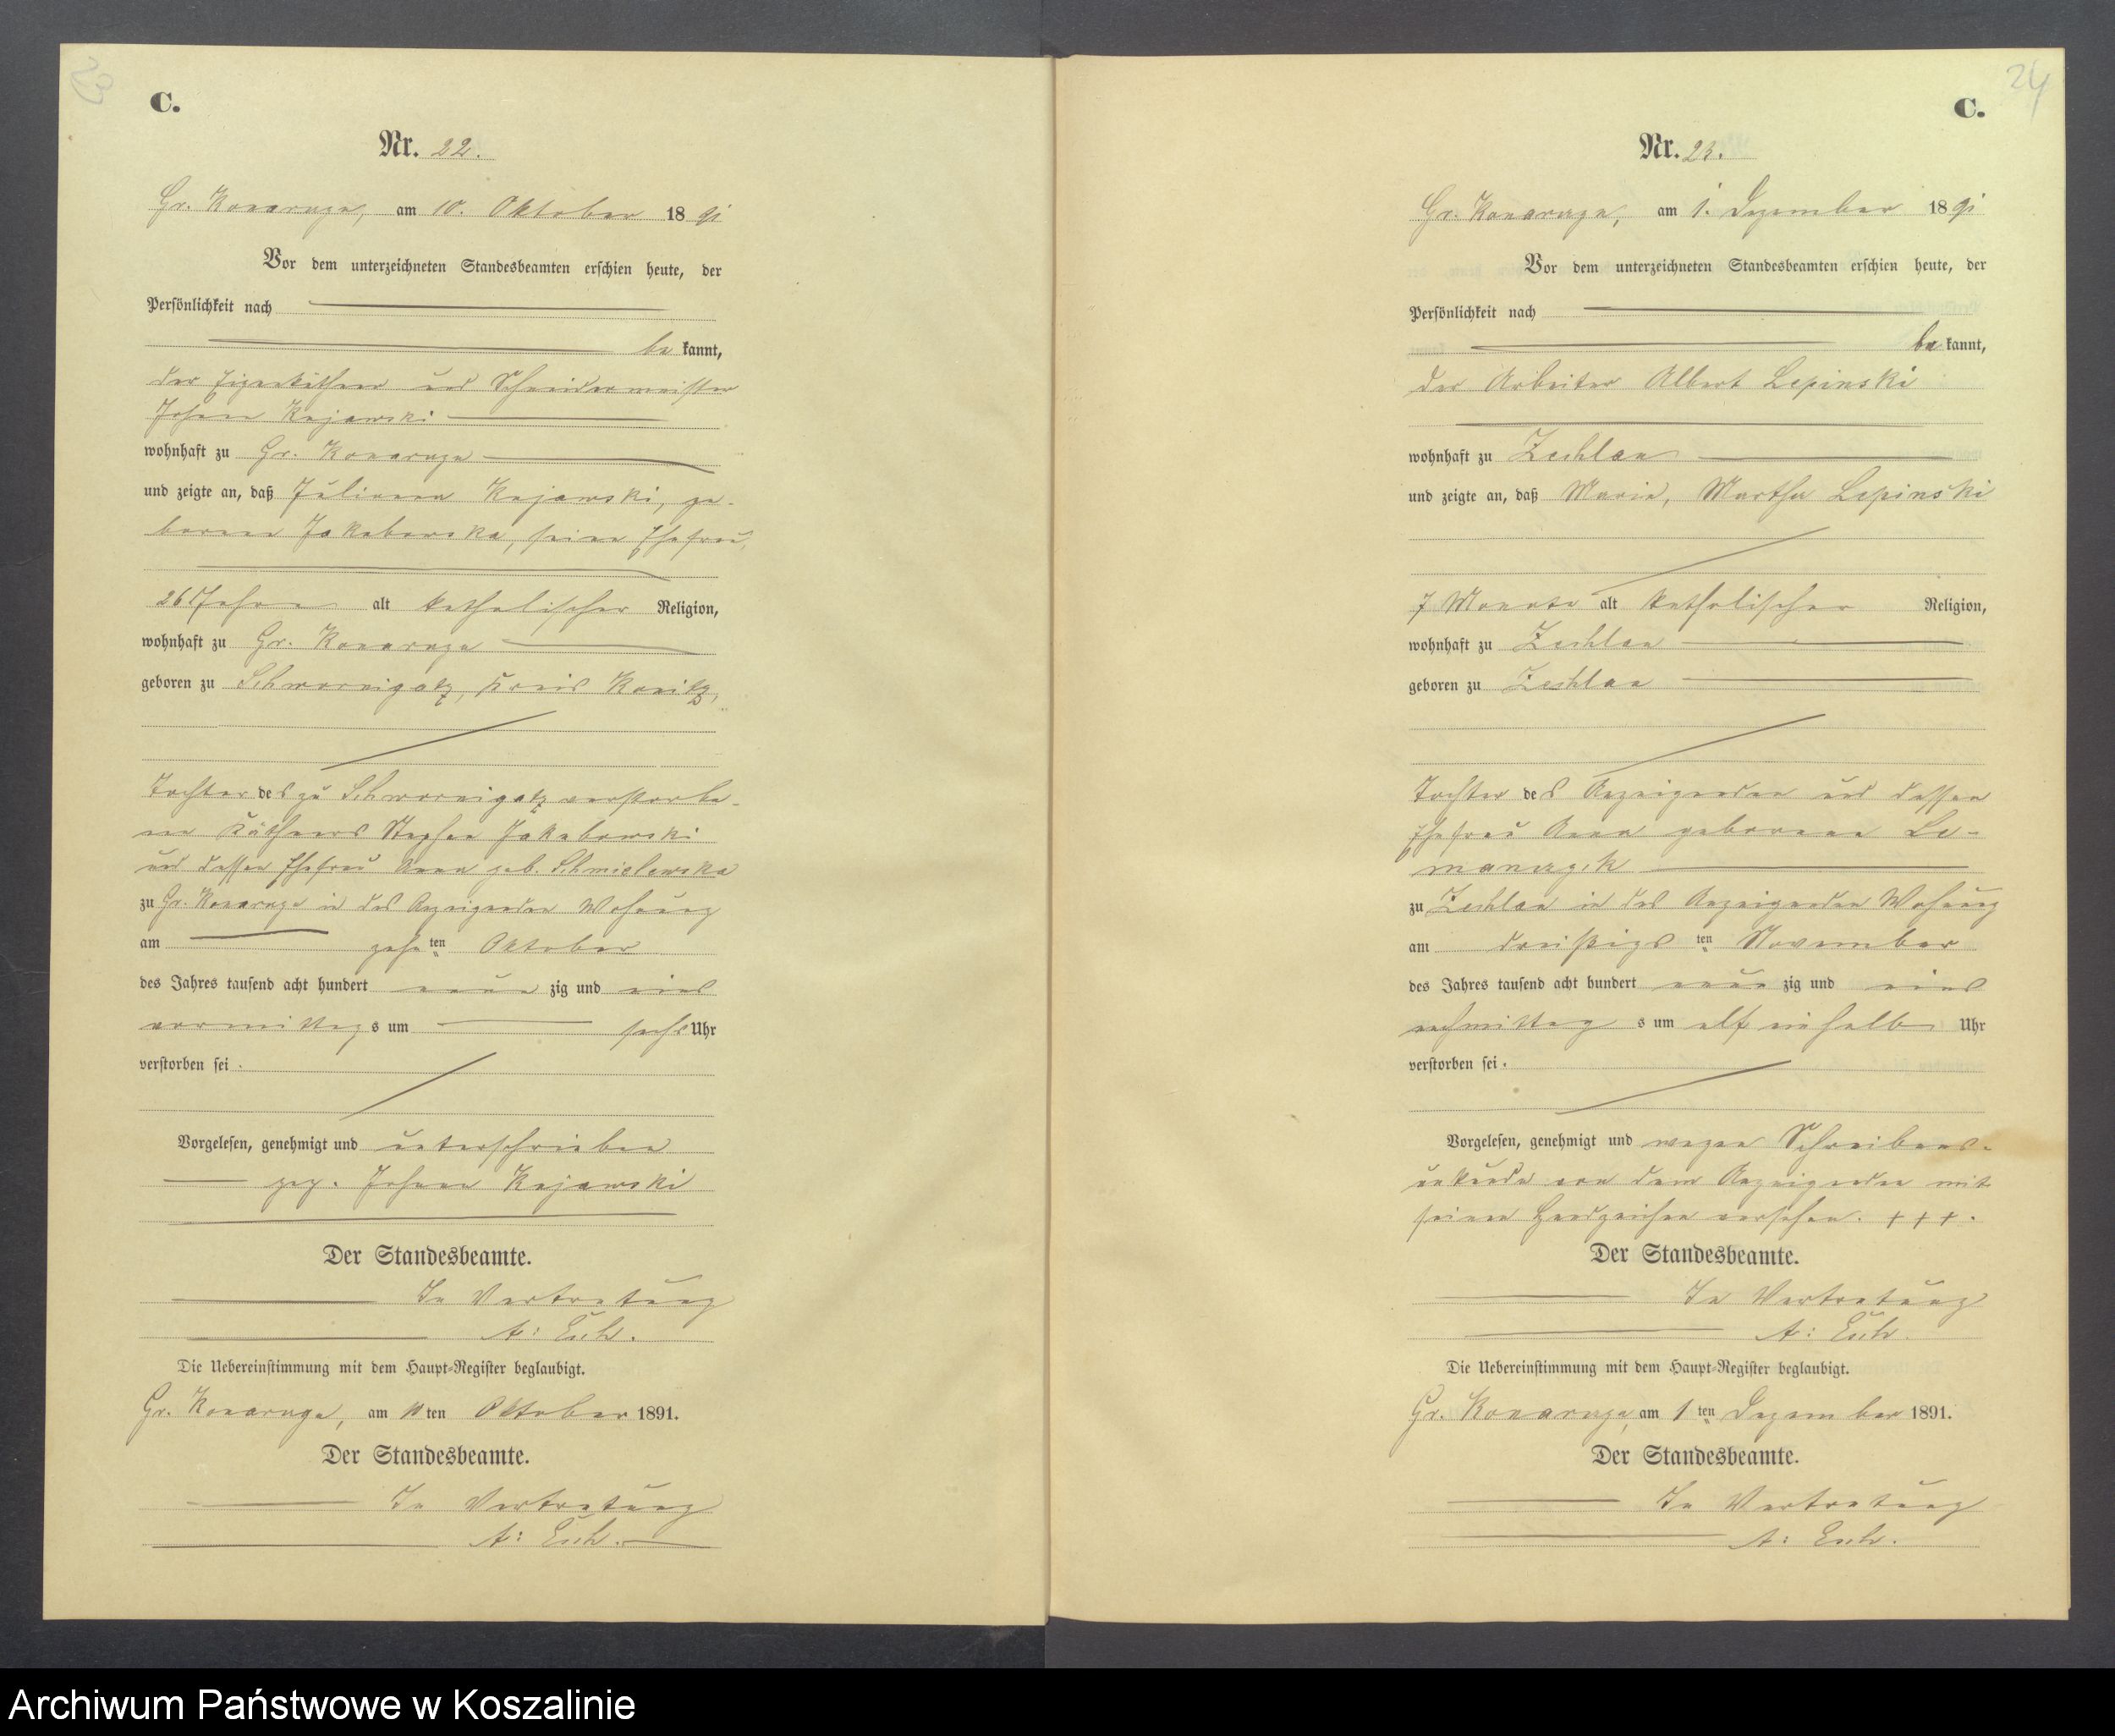 23
C.
Nr. 22.
Gr. Konarczyn, am 10. Oktober 1891
Vor dem unterzeichneten Standesbeamten erschien heute, der
Persönlichkeit nach
be kannt,
der Eigenkäthner und Schneidermeister
Johann Kujawski
wohnhaft zu Gr. Konarczyn
und zeigte an, daß Julianna Kujawski, ge-
borene Jakubowska, seine Ehefrau,
26 Jahre alt katholischer Religion,
wohnhaft zu Gr. Konarczyn
geboren zu Schwornigatz, Kreis Konitz,
Tochter des zu Schwornigatz verstorbe-
nen Käthners Stephan Jakubowski
und dessen Ehefrau Anna geb. Schmielewska
zu Gr. Konarczyn in des Anzeigenden Wohnung
am zehn ten Oktober
des Jahres tausend acht hundert neun zig und eins
vormittag s um sechs Uhr
verstorben sei.
Vorgelesen, genehmigt und unterschrieben
gez. Johann Kujawski
Der Standesbeamte.
In Vertretung
A: Esch.
Die Uebereinstimmung mit dem Haupt-Register beglaubigt.
Gr. Konarczyn, am 10 ten Oktober 1891.
Der Standesbeamte.
In Vertretung
A: Esch.
24
C.
Nr. 23.
Gr. Konarczyn, am 1. Dezember 1891
Vor dem unterzeichneten Standesbeamten erschien heute, der
Persönlichkeit nach
be kannt,
der Arbeiter Albert Lepinski
wohnhaft zu Zechlau
und zeigte an, daß Maria, Martha Lepinski
7 Monate alt katholischer Religion,
wohnhaft zu Zechlau
geboren zu Zechlau
Tochter des Anzeigenden und dessen
Ehefrau Anna geborene Le-
manczyk
zu Zechlau in des Anzeigenden Wohnung
am dreißigs ten November
des Jahres tausend acht hundert neun zig und eins
nachmittag s um elf ein halb Uhr
verstorben sei.
Vorgelesen, genehmigt und wegen Schreibens-
unkunde von dem Anzeigenden mit
seinen Handzeichen versehen. + + +.
Der Standesbeamte.
In Vertretung
A: Esch.
Die Uebereinstimmung mit dem Haupt-Register beglaubigt.
Gr. Konarczyn, am 1 ten Dezember 1891.
Der Standesbeamte.
In Vertretung
A: Esch.
Archiwum Państwowe w Koszalinie